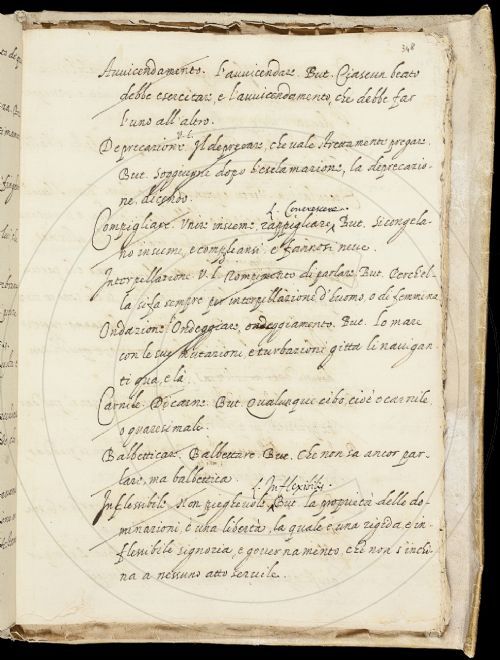 348
Avvicendamento. L'avvicendare. But. Ciascun beato
debbe esercitare, e l'avvicendamento, che debbe far
l'uno all'altro.
V. L.
Deprecazione. Il deprecare, che vale strettamente pregare.
But. Soggiugne dopo l'esclamazione, la deprecazio-
ne, dicendo.
L. Concrescere.
Compigliare. Unire insieme, rappigliare. But. Si congela-
no insieme, e compleansi e fannosi neve.
Interpellazione V. L. Rompimento di parlare. But. Perch'el-
la si fa sempre per interpellazione d'huomo, o di femmina.
Ondazione. Ondeggiare, ondeggiamento. But. Lo mare
con le sue mutazioni, e turbazioni gitta li navigan-
ti qua, e là.
Carnile. Di carne. But. Qualunque cibo, cioè o carnile,
o quaresimale.
Balbetticare. Balbettare. But. Che non sa ancor par-
lare, ma balbettica.
L. Inflexibilis.
Inflessibile. Non pieghevole. But. La propietà delle do-
minazioni, è una libertà, la quale è una rigida, e in-
flessibile signoria, e governamento, che non s'inchi-
na a nessuno atto servile.